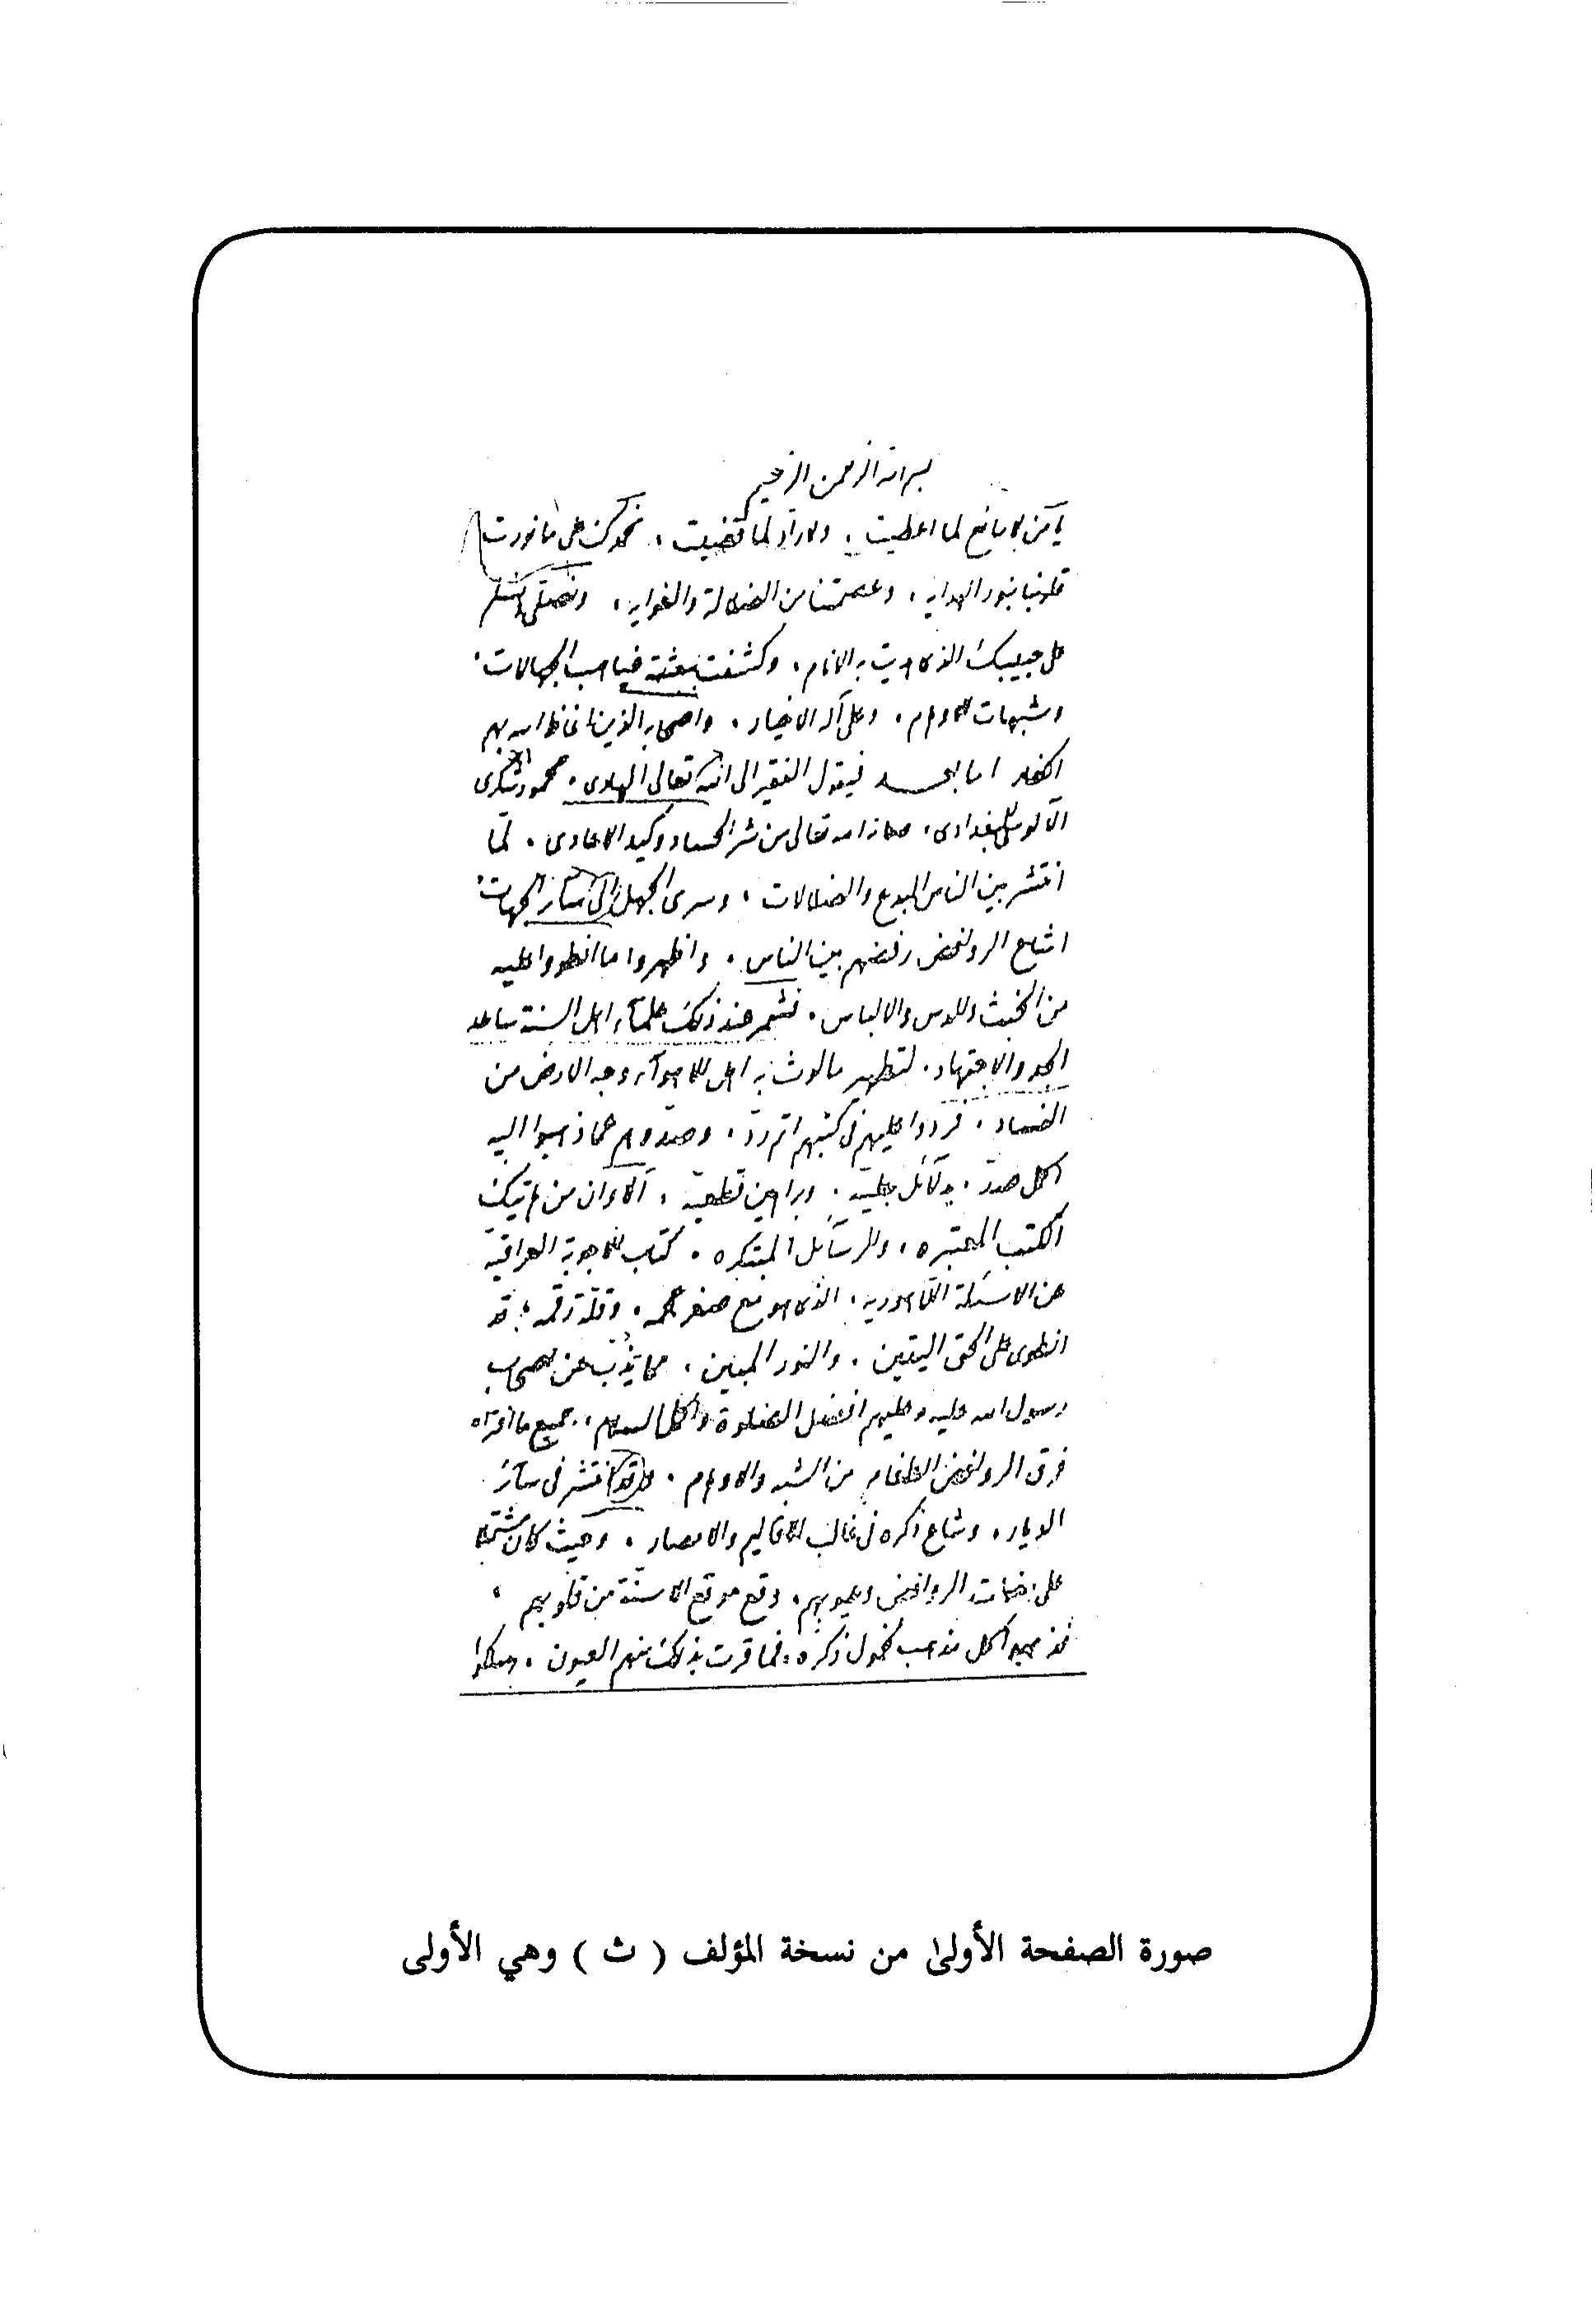 بسم الله الرحمن الرحيم
يا من لا مانع لما اعطيت، ولا راد لما قضيت، نحمدك على ما نورت
قلوبنا بنور الهدايه، وعصمتنا من الضلالة والغوايه، ونصلى ونسلم
على حبيبك الذى هديت به الانام، وكشفت ببعثته غياهب الجهالات،
وشبهات الاوهام، وعلى آله الاخيار، واصحابه الذين اغاظ الله بهم
الكفار اما بعد فيقول الفقير الى الله تعالى الهادى، محمود شكرى
الآلوسى البغدادى، صانه الله تعالى من شر الحساد وكيد الاعادى، لما
انتشر بين الناس البدع والضلالات، وسرى الجهل الى سائر الجهات،
اشاع الروافض رفضهم بين الناس، واظهروا ما انطووا عليه
من الخبث والالباس، فشمر عند ذلك علماء اهل السنة ساعد
الجد والاجتهاد، لتطهير ما لوث به اهل الاهوآء وجه الارض من
الفساد، فردوا عليهم فى كتبهم اتم رد، وصدوهم عما ذهبوا اليه
اكمل صد، بدلائل جليه، وبراهين قطعيه، ألا وان من تيك
الكتب المعتبره، والرسآئل المبتكره، كتاب الاجوبة العراقيه
عن الاسئلة اللاهوريه، الذى هو مع صغر حجمه، وقلة رقمه، قد
انطوى على الحق اليقين، والنور المبين، مما يذب عن اصحاب
رسول الله عليه وعليهم افضل الصلوة واكمل السلام، جميع ما افتراه
فرق الروافض الطغام من الشبه والاوهام، وقد انتشر فى سآئر
الديار، وشاع ذكره فى غالب الاقاليم والامصار، وحيث كان مشتملا
على الروافض وعيوبهم، وقع موقع الاسنة من قلوبهم،
كل مذهب لخمول ذكره، فما قرت بذلك منهم العيون،
صورة الصفحة الأولى من نسخة المؤلف ( ث ) وهي الأولى